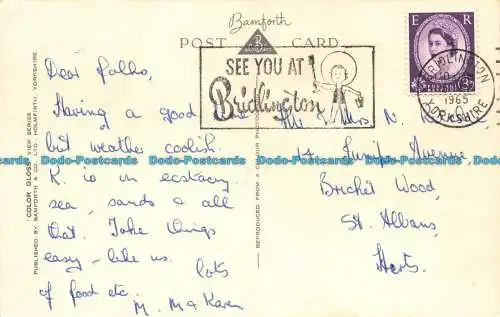 Bamforth
POST CARD
SEE YOU AT
Bridlington
E R
BRIDLINGTON
1965
YORKSHIRE
Dear Folks,
Having a good
but weather coolish.
K. is in ecstasy
sea, sands & all
that. Take things
easy - like us.
lots
of food etc.
M. Mc Karen
Mr & Mrs. N.
14 Juniper Avenue,
Bricket Wood,
St. Albans,
Herts.
"COLOR GLOSS" VIEW SERIES
PUBLISHED BY BAMFORTH & CO. LTD. HOLMFIRTH, YORKSHIRE.
REPRODUCED FROM A COLOUR PHOTO
Dodo-Postcards Dodo-Postcards Dodo-Postcards Dodo-Postcards Dodo-Postcards Dodo-Postcards